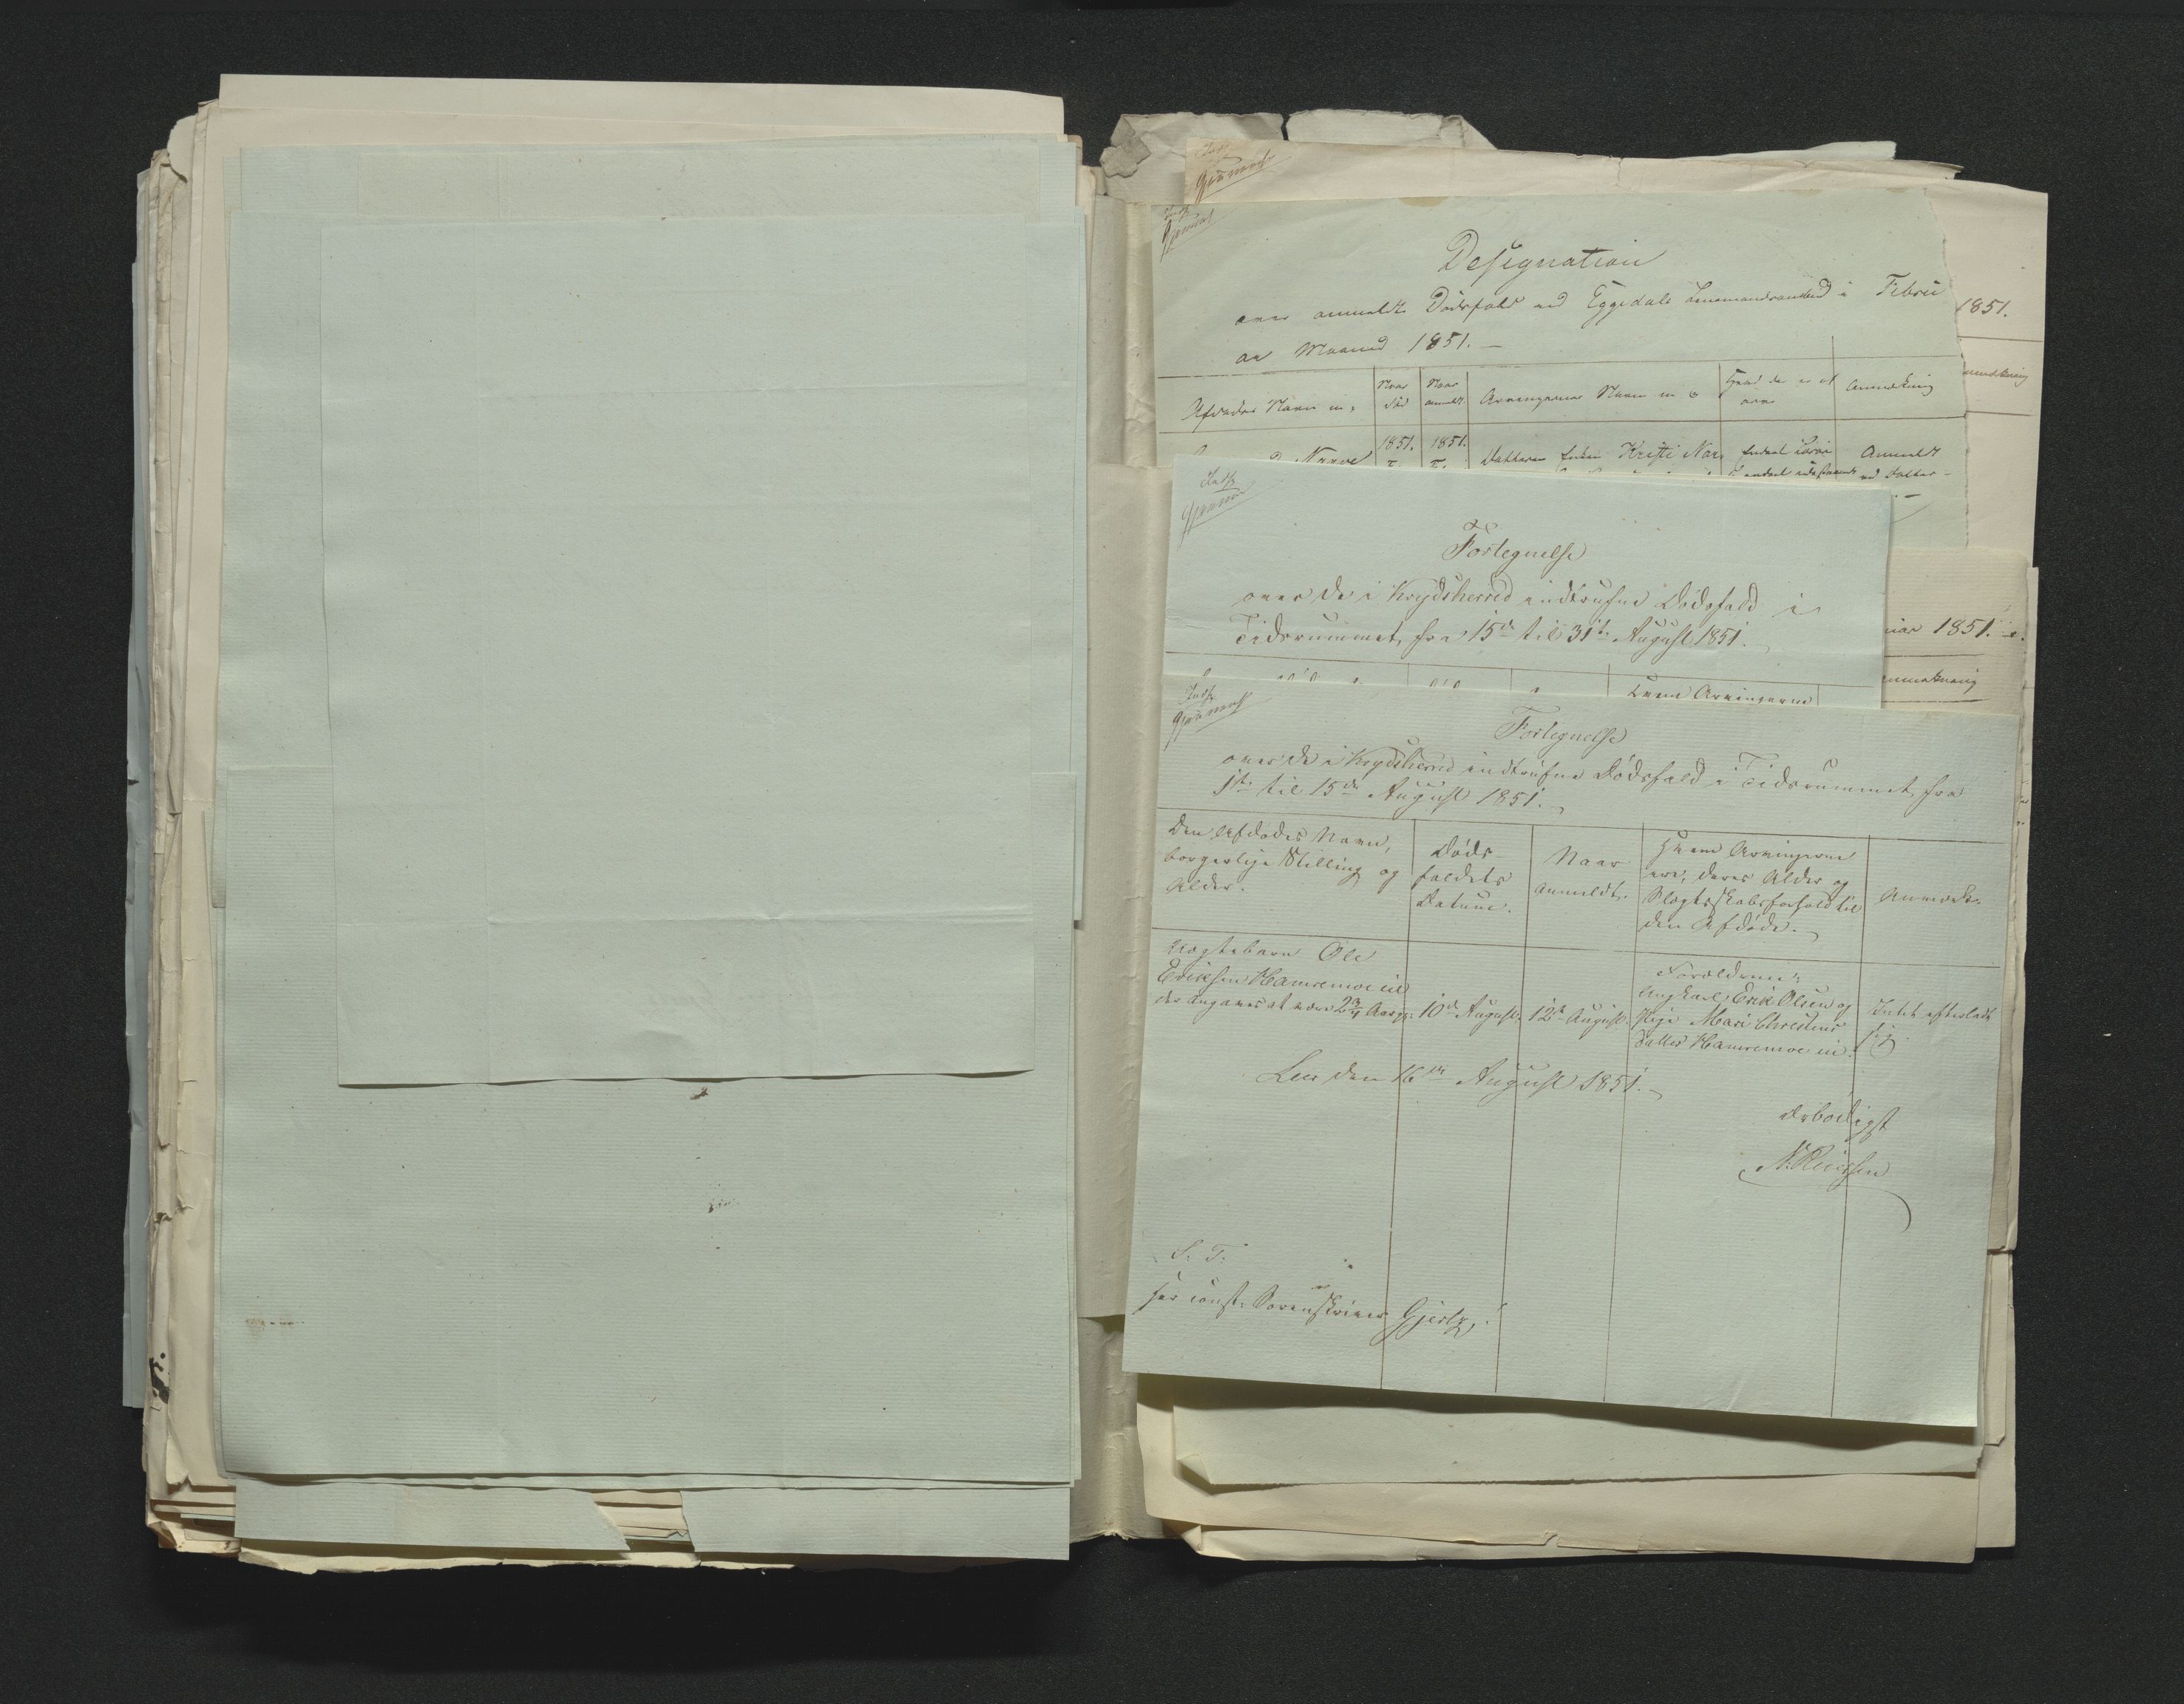 Designation
over anmeldte Dødsfald ved Eggedals Lensmandsembed i Februar
ar Maaned 1851. –
Afdødes Navn m.
Naar død
Naar anmeldt
Arvingernes Navn m
Hvad der er at arve
Anmærkning
Narve
1851.
1851.
Datteren Enken Kristi Nar
Anmeldt
1851.
mærkning
Fortegnelse
over de i Krydsherred indtrufne Dødsfald i
Tidsrummet fra 15de til 31te August 1851.
Hvem Arvingerne
uar 1851.
nmærkning
Fortegnelse
over de i Krydsherred indtrufne Dødsfald i Tidsrummet fra
1ste til 15de August 1851.
Den Afdødes Navn,
borgerlige Stilling og
Alder.
Døds-
faldets
Datum.
Naar
anmeldt.
Hvem Arvingerne
ere, deres Alder og
Slægtskabsforhold til
den Afdøde.
Anmærk.
Uægtebarn Ole
Eriksen Hamremoe
der angaves at være 2 3/4 Aar gl:
10de August.
12te August.
Forældrene:
Ungkarl Erik Olsen og
Pige Mari Christens
datter Hamremoe
Intet efterladt
sig.
Leer den 16de August 1851.
Ærbødigst
S. T.
Hr const. Sorenskriver Gjertz!